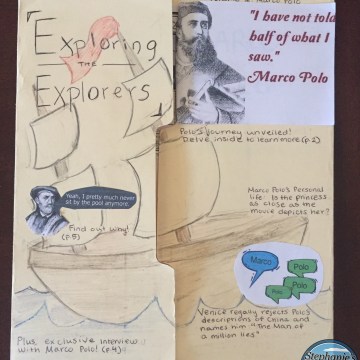 Exploring
THE
Explorers
"I have not told
half of what I
saw."
Marco Polo
Polo's journey unveiled!
Delve inside to learn more (p.2)
Yeah, I pretty much never
sit by the pool anymore.
Find out why!
(p.5)
Marco Polo's Personal
life: Is the princess
as close as the
movie depicts her?
Marco
Polo
Polo
Polo
Venice regally rejects Polo's
descriptions of China and
names him "The Man of
a million lies"
Plus, exclusive interview
with Marco Polo! (p.4)
Stephanie